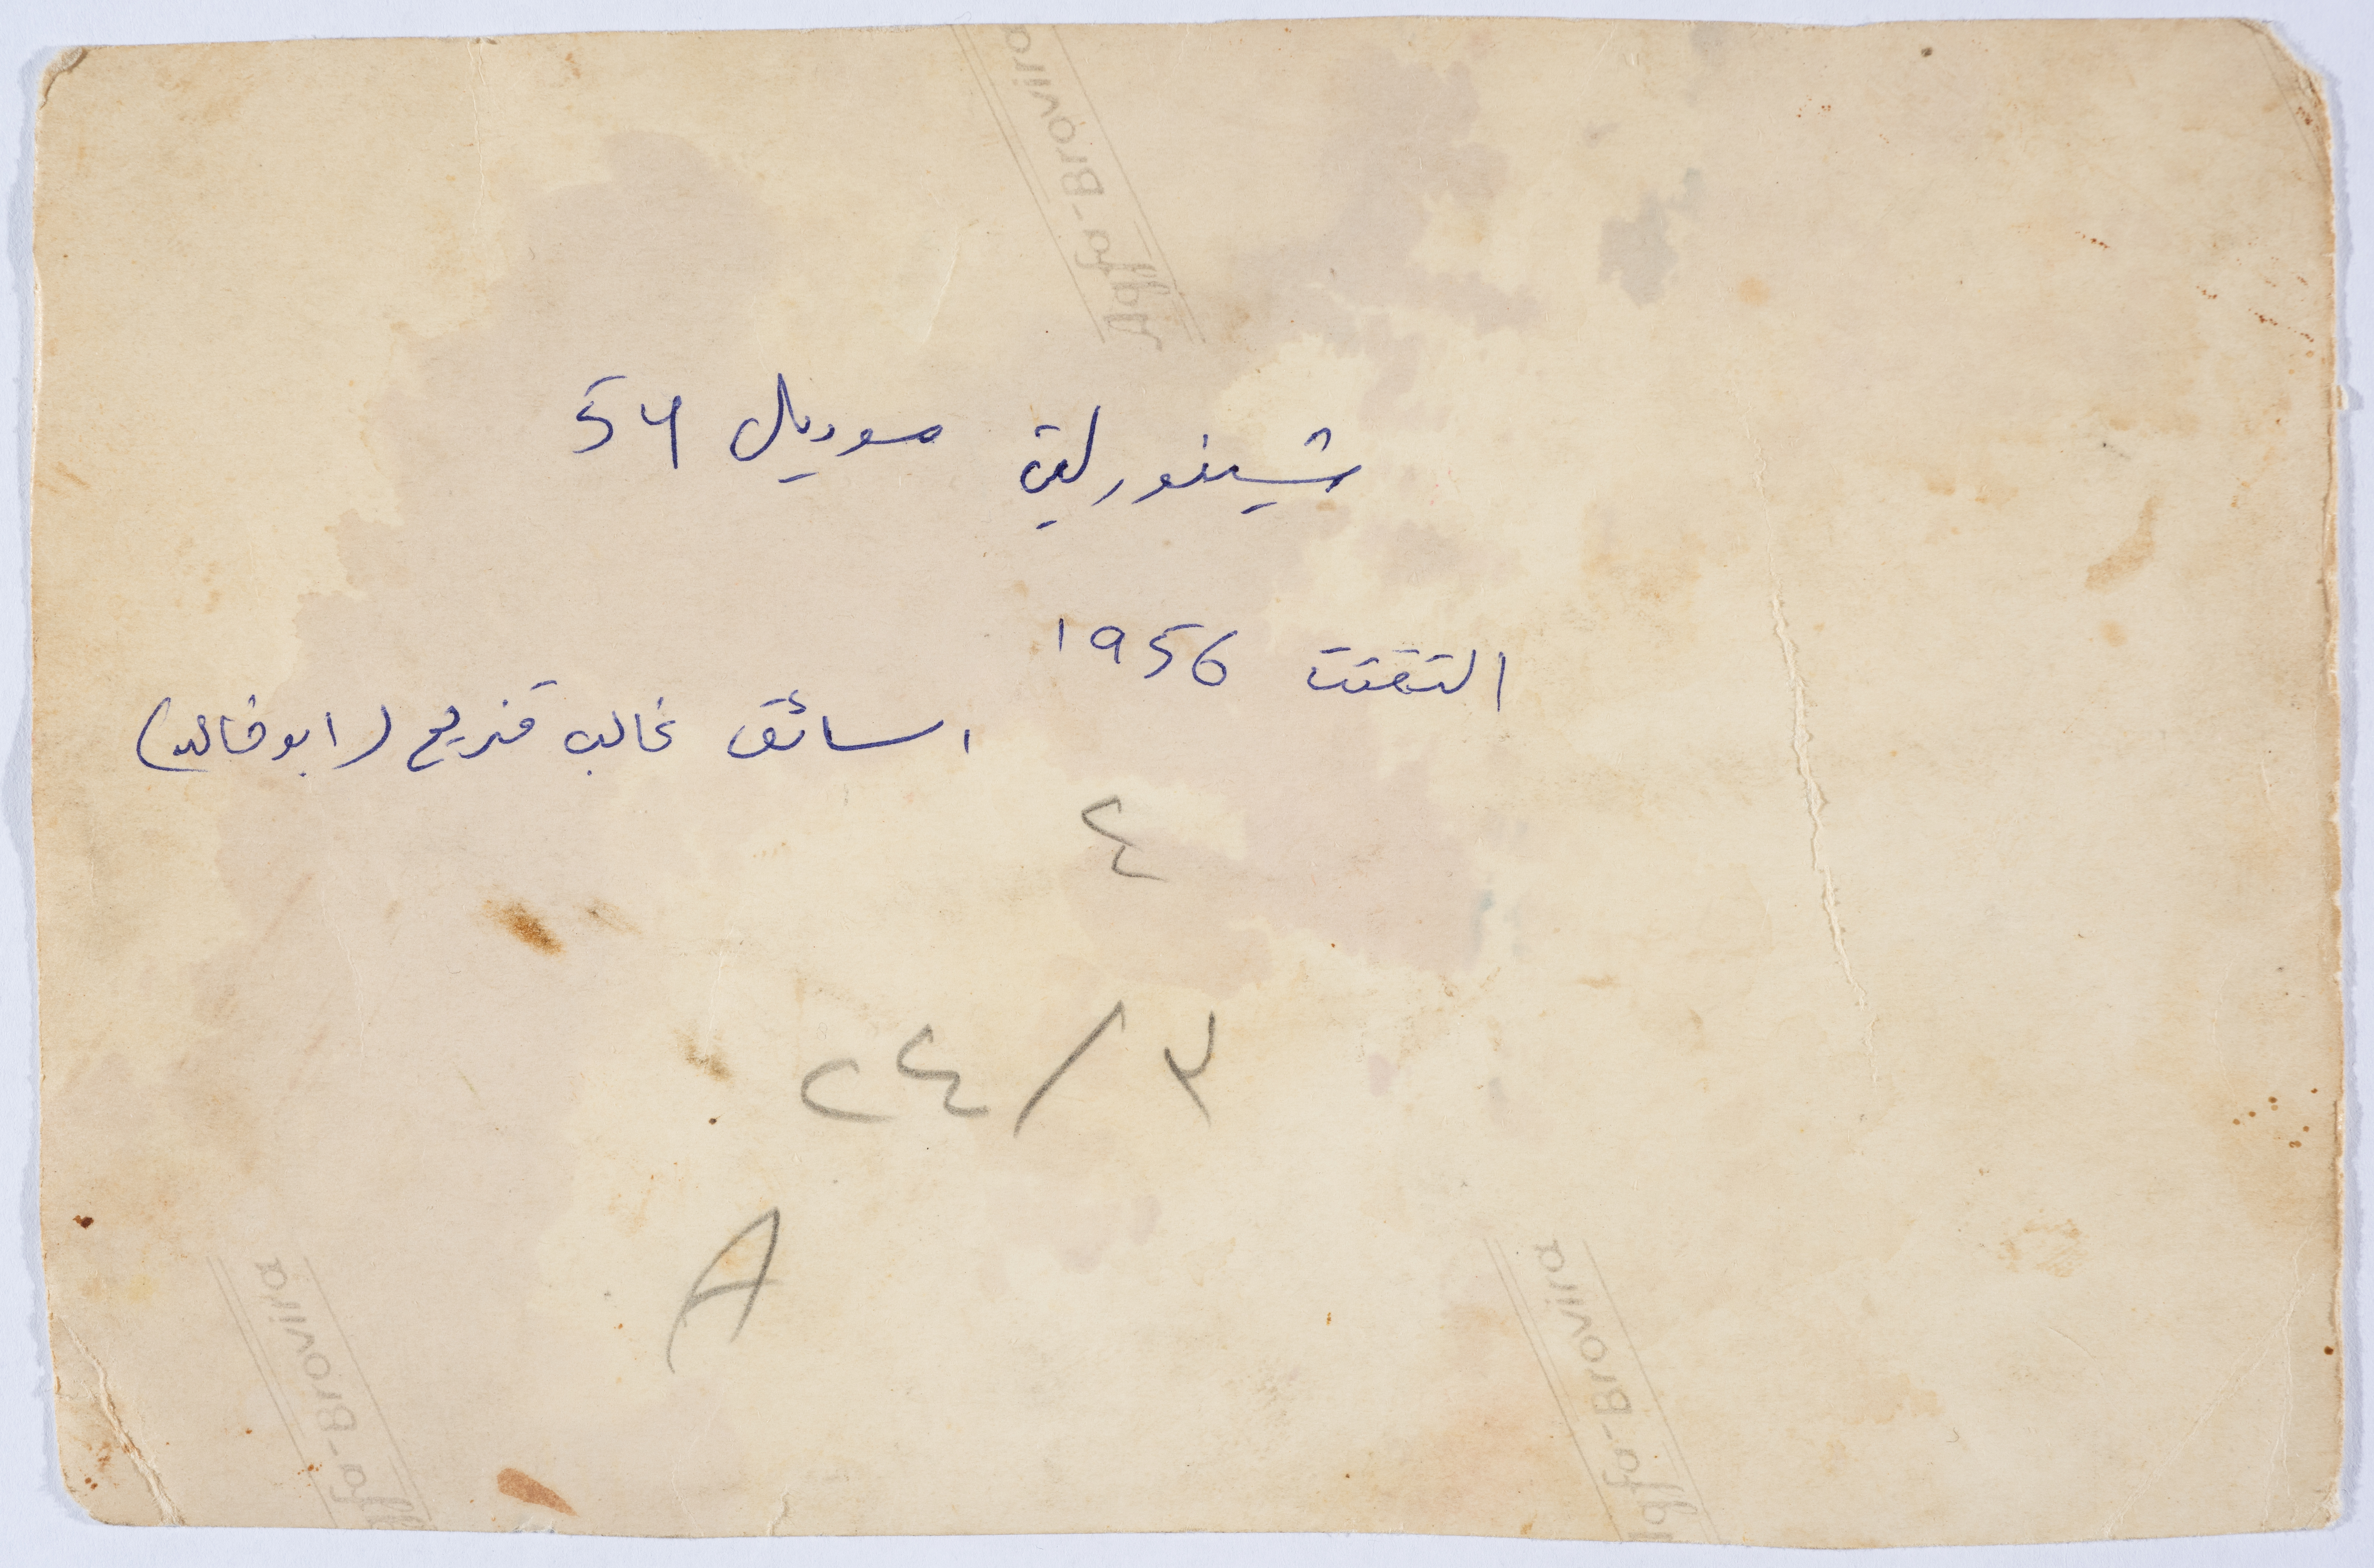 Agfa-Brovira
شيفورليت موديل 54
التقتت 1956
السائق غالب قزيح (ابو خالد)
٤
٢٤/٣
A
Agfa-Brovira
Agfa-Brovira